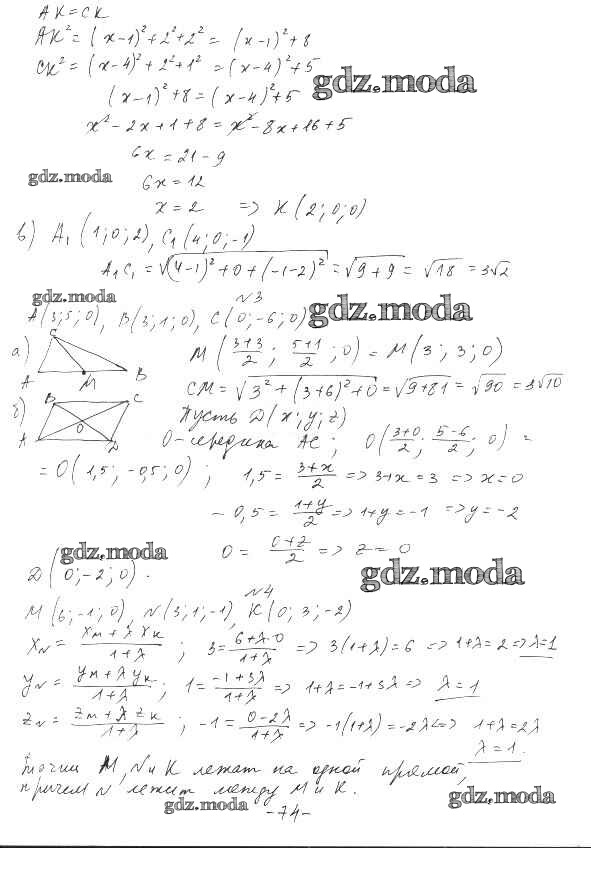 AK = CK
AK² = (x-1)² + 2² + 2² = (x-1)² + 8
CK² = (x-4)² + 2² + 1² = (x-4)² + 5
gdz.moda
(x-1)² + 8 = (x-4)² + 5
x² - 2x + 1 + 8 = x² - 8x + 16 + 5
6x = 21 - 9
gdz.moda
6x = 12
x = 2 => K(2; 0; 0)
в) A₁(1; 0; 2), C₁(4; 0; -1)
A₁C₁ = √((4-1)² + 0 + (-1-2)²) = √(9+9) = √18 = 3√2
gdz.moda
№3
gdz.moda
A(3; 5; 0), B(3; 1; 0), C(0; -6; 0)
а) C A M B
M((3+3)/2; (5+1)/2; 0) = M(3; 3; 0)
CM = √(3² + (3+6)² + 0) = √(9+81) = √90 = 3√10
б) B C A O D
Пусть D(x; y; z)
O - середина AC; O((3+0)/2; (5-6)/2; 0) =
= O(1,5; -0,5; 0); 1,5 = (3+x)/2 => 3+x = 3 => x = 0
-0,5 = (1+y)/2 => 1+y = -1 => y = -2
gdz.moda
0 = (0+z)/2 => z = 0
gdz.moda
D(0; -2; 0).
№4
M(6; -1; 0), N(3; 1; -1), K(0; 3; -2)
x_N = (x_M + λ x_K)/(1+λ); 3 = (6+λ·0)/(1+λ) => 3(1+λ) = 6 => 1+λ = 2 => λ = 1
y_N = (y_M + λ y_K)/(1+λ); 1 = (-1+3λ)/(1+λ) => 1+λ = -1+3λ => λ = 1
z_N = (z_M + λ z_K)/(1+λ); -1 = (0-2λ)/(1+λ) => -1(1+λ) = -2λ <=> 1+λ = 2λ
λ = 1.
Точки M, N и K лежат на одной прямой,
причем N лежит между M и K.
gdz.moda
gdz.moda
-74-